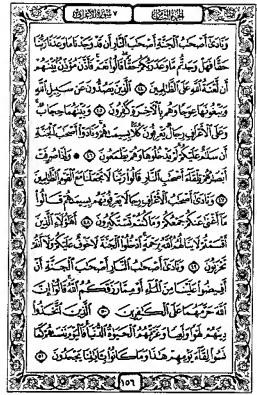 الجزء الثامن ٧ سورة الأعراف
وَنَادَىٰ أَصْحَابُ الْجَنَّةِ أَصْحَابَ النَّارِ أَن قَدْ وَجَدْنَا مَا وَعَدَنَا رَبُّنَا
حَقًّا فَهَلْ وَجَدتُّم مَّا وَعَدَ رَبُّكُمْ حَقًّا قَالُوا نَعَمْ فَأَذَّنَ مُؤَذِّنٌ بَيْنَهُمْ
أَن لَّعْنَةُ اللَّهِ عَلَى الظَّالِمِينَ ٤٤ الَّذِينَ يَصُدُّونَ عَن سَبِيلِ اللَّهِ
وَيَبْغُونَهَا عِوَجًا وَهُم بِالْآخِرَةِ كَافِرُونَ ٤٥ وَبَيْنَهُمَا حِجَابٌ
وَعَلَى الْأَعْرَافِ رِجَالٌ يَعْرِفُونَ كُلًّا بِسِيمَاهُمْ وَنَادَوْا أَصْحَابَ الْجَنَّةِ
أَن سَلَامٌ عَلَيْكُمْ لَمْ يَدْخُلُوهَا وَهُمْ يَطْمَعُونَ ٤٦ وَإِذَا صُرِفَتْ
أَبْصَارُهُمْ تِلْقَاءَ أَصْحَابِ النَّارِ قَالُوا رَبَّنَا لَا تَجْعَلْنَا مَعَ الْقَوْمِ الظَّالِمِينَ
٤٧ وَنَادَىٰ أَصْحَابُ الْأَعْرَافِ رِجَالًا يَعْرِفُونَهُم بِسِيمَاهُمْ قَالُوا
مَا أَغْنَىٰ عَنكُمْ جَمْعُكُمْ وَمَا كُنتُمْ تَسْتَكْبِرُونَ ٤٨ أَهَٰؤُلَاءِ الَّذِينَ
أَقْسَمْتُمْ لَا يَنَالُهُمُ اللَّهُ بِرَحْمَةٍ ادْخُلُوا الْجَنَّةَ لَا خَوْفٌ عَلَيْكُمْ وَلَا أَنتُمْ
تَحْزَنُونَ ٤٩ وَنَادَىٰ أَصْحَابُ النَّارِ أَصْحَابَ الْجَنَّةِ أَنْ
أَفِيضُوا عَلَيْنَا مِنَ الْمَاءِ أَوْ مِمَّا رَزَقَكُمُ اللَّهُ قَالُوا إِنَّ
اللَّهَ حَرَّمَهُمَا عَلَى الْكَافِرِينَ ٥٠ الَّذِينَ اتَّخَذُوا
دِينَهُمْ لَهْوًا وَلَعِبًا وَغَرَّتْهُمُ الْحَيَاةُ الدُّنْيَا فَالْيَوْمَ نَنسَاهُمْ كَمَا
نَسُوا لِقَاءَ يَوْمِهِمْ هَٰذَا وَمَا كَانُوا بِآيَاتِنَا يَجْحَدُونَ ٥١
١٥٦